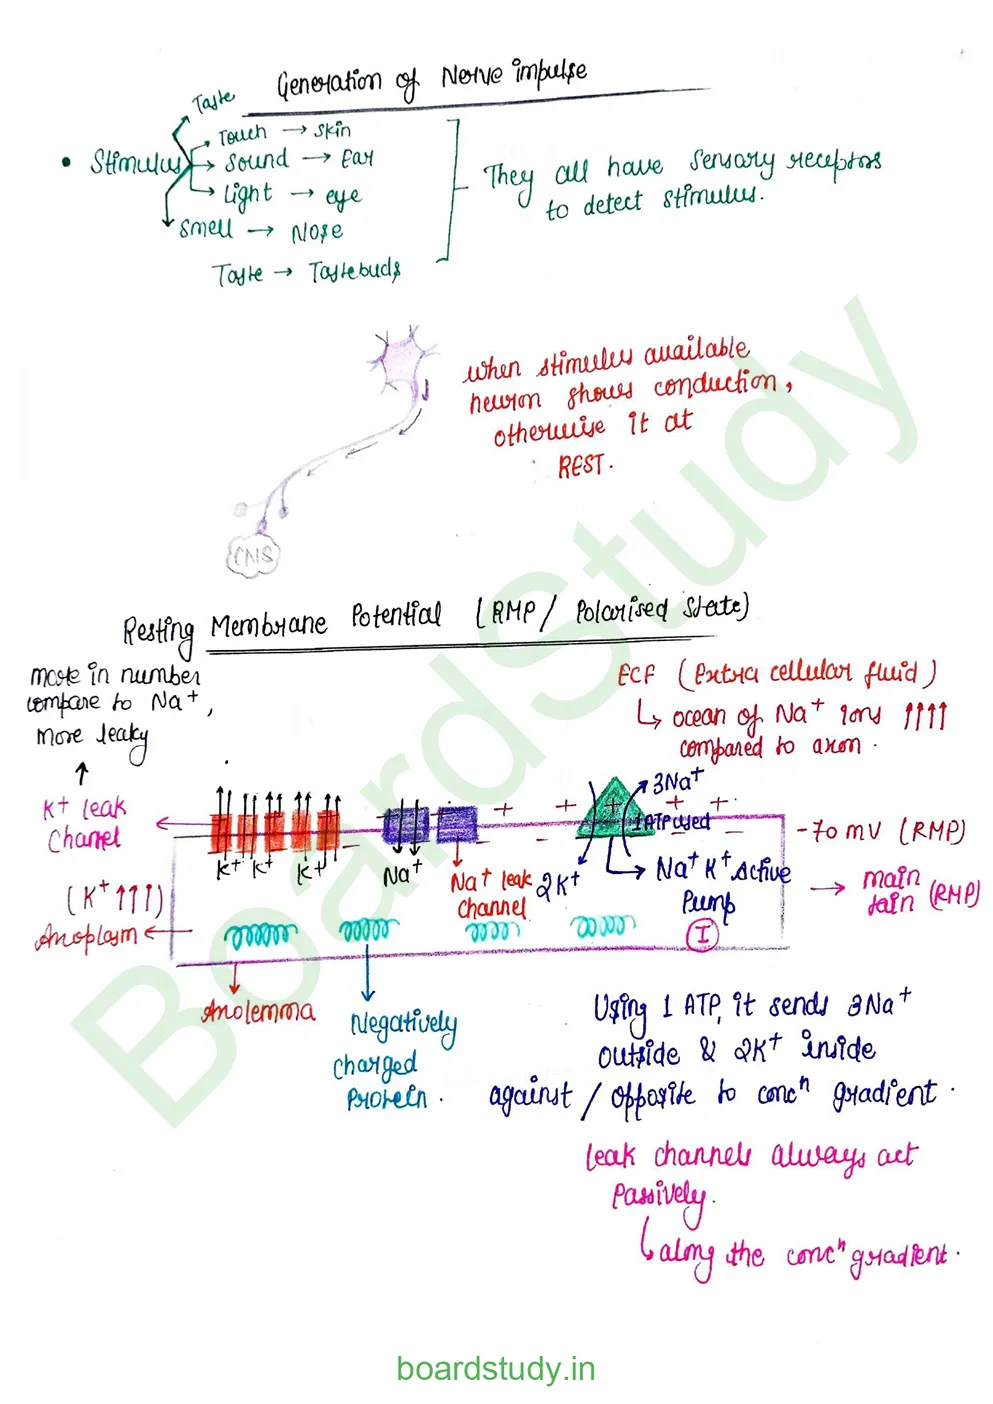 Generation of Nerve impulse
Taste
• Stimulus
Touch → Skin
Sound → Ear
Light → eye
Smell → Nose
Taste → Tastebuds
They all have sensory receptors
to detect stimulus.
when stimulus available
neuron shows conduction,
otherwise it at
REST.
CNS
Resting Membrane Potential (RMP / Polarised State)
more in number
compare to Na+,
more leaky
K+ leak
Channel
(K+ ↑↑↑)
Axoplasm
ECF (Extra cellular fluid)
ocean of Na+ Ions ↑↑↑↑
compared to axon.
K+ K+ K+
Na+
Na+ leak
channel
3Na+
1ATP used
2K+
Na+ K+ Active
Pump
I
-70 mV (RMP)
→ main
(RMP)
Axolemma
Negatively
charged
protein.
Using 1 ATP, it sends 3Na+
outside & 2K+ inside
against / opposite to concn gradient.
leak channels always act
passively.
along the concn gradient.
BoardStudy
boardstudy.in